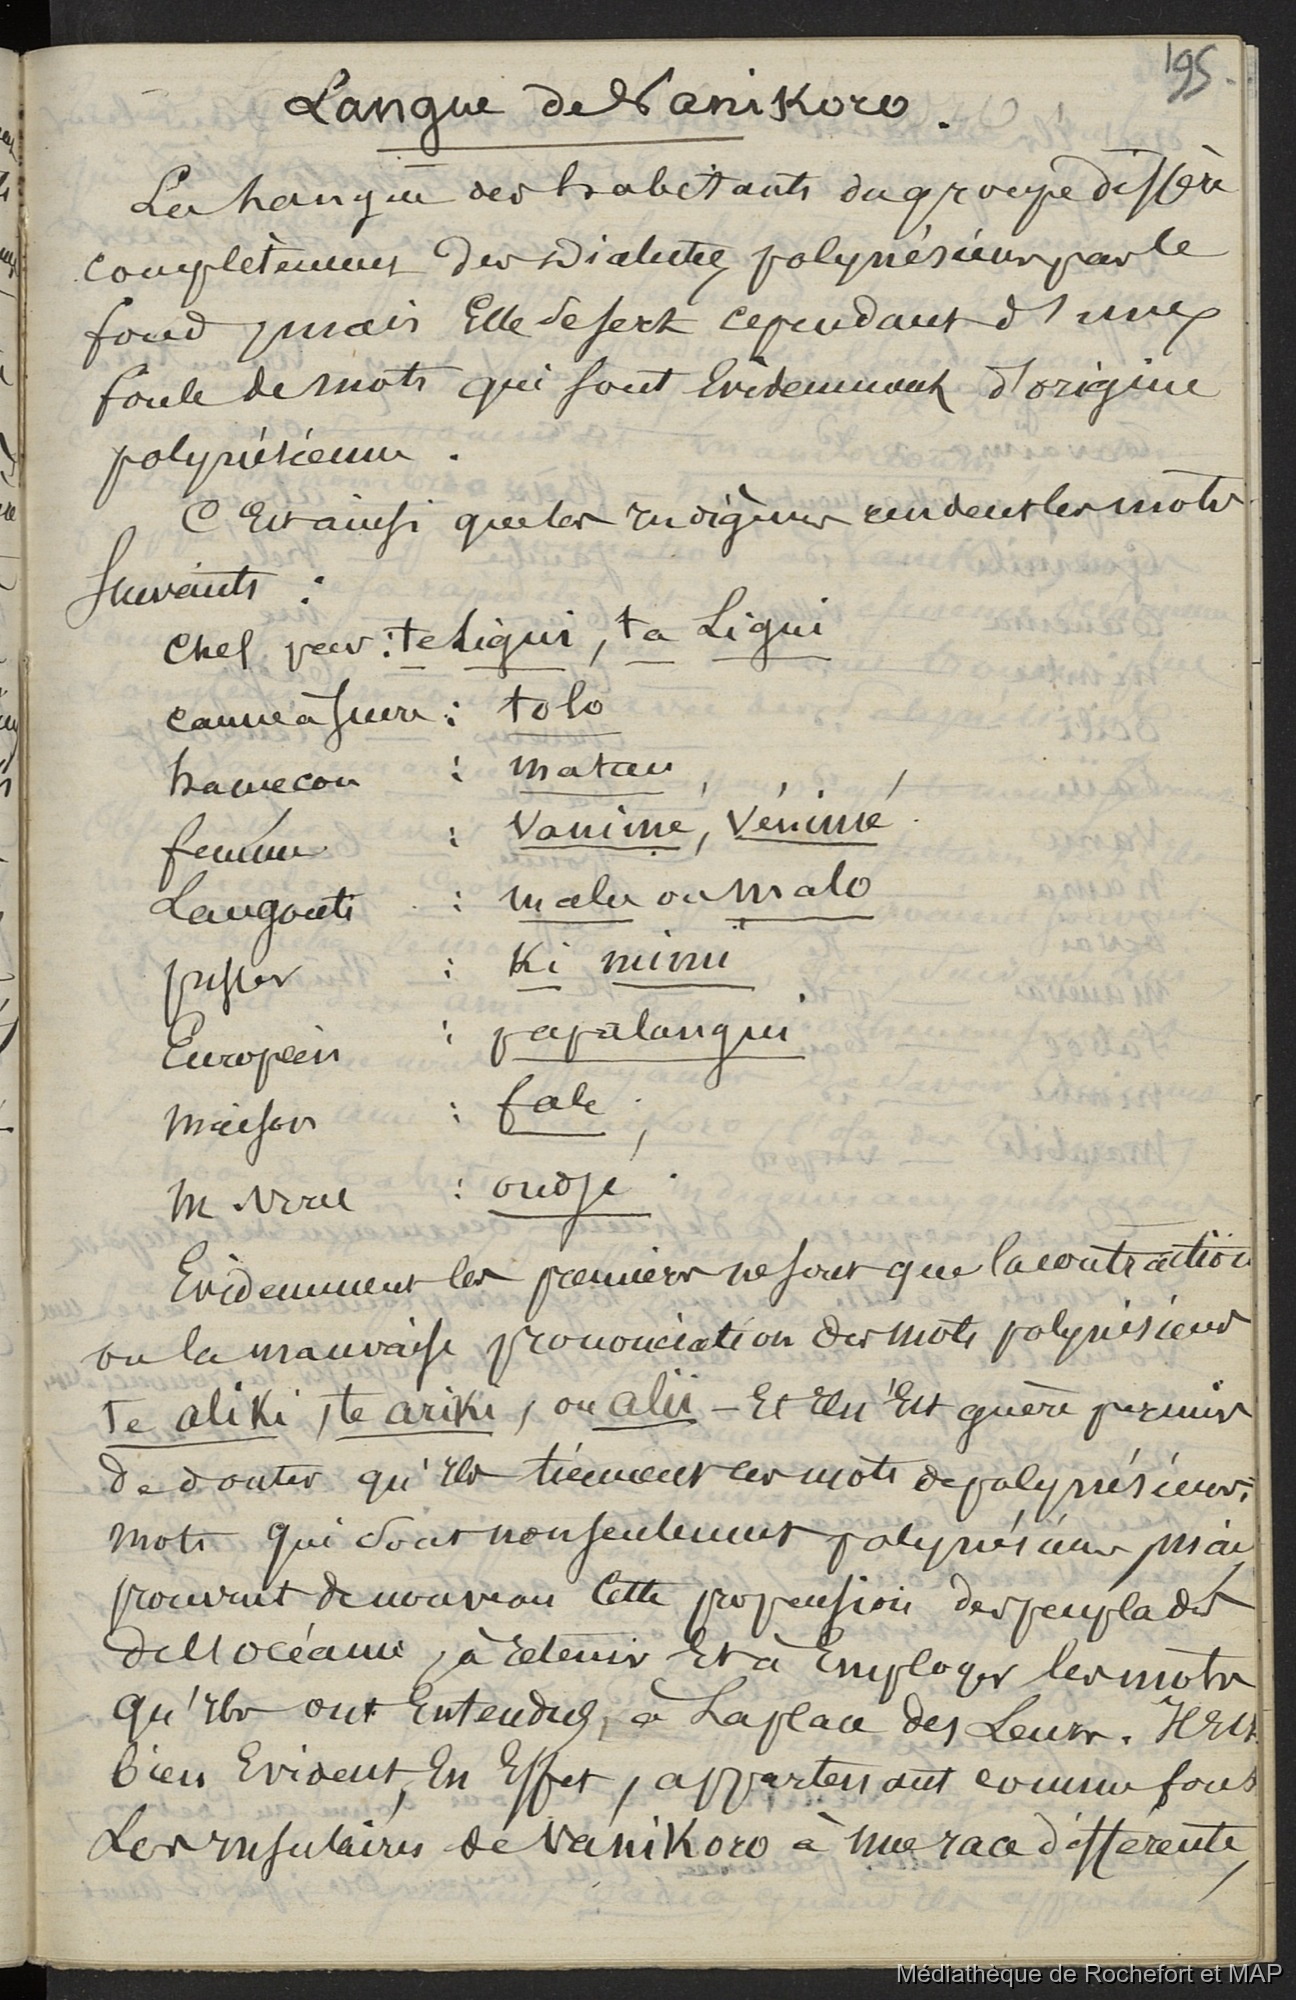 195.
Langue de Vanikoro.
La langue des habitants du groupe diffère
complètement des dialectes polynésiens par le
fond, mais Elle se sert cependant d'une
foule de mots qui sont Evidemment d'origine
polynésienne.
C'Est ainsi que les indigènes rendent les mots
suivants :
Chef par : te Ligui, ta Ligui
canne à sucre : tolo
hameçon : matau
femme : vanimé, vénimé
Langouti : malu ou malo
pisser : Ki mimi
Européen : papalangui
maison : fale
M. Viril : oudjé.
Evidemment les premiers ne sont que la contraction
ou la mauvaise prononciation des mots polynésiens
Te aliki, te ariki, ou alii - Et il n'Est guère permis
de douter qu'ils tiennent ces mots de polynésiens;
mots qui sont non seulement polynésiens mais
prouvent de nouveau cette propension des peuplades
de l'océanie, à retenir Et à Employer les mots
qu'ils ont Entendus, à La place des Leurs. Il Est
bien Evident, En Effet, appartenant comme font
Les insulaires de Vanikoro à une race différente,
Médiathèque de Rochefort et MAP